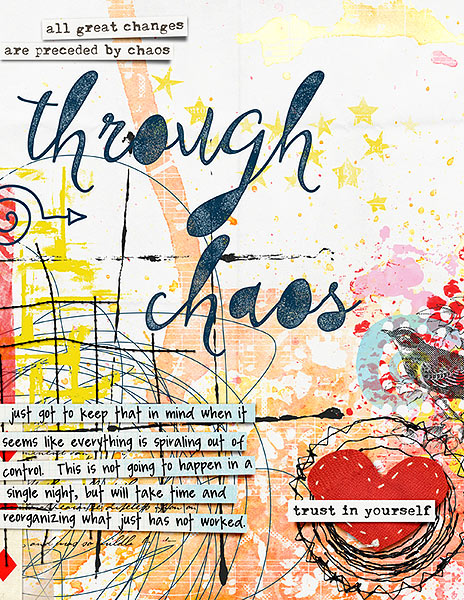 all great changes
are preceded by chaos
through
chaos
just got to keep that in mind when it
seems like everything is spiraling out of
control. This is not going to happen in a
single night, but will take time and
reorganizing what just has not worked.
trust in yourself